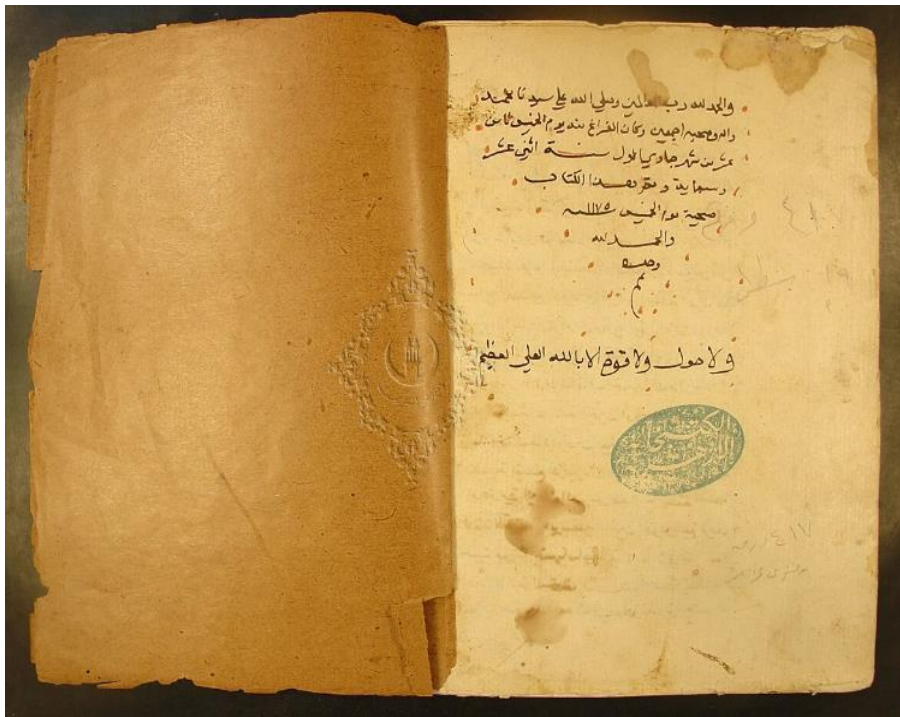 والحمد لله رب العالمين وصلي الله علي سيدنا محمد
واله وصحبه اجمعين وكان الفراغ منه يوم الخميس ثامن
عشر من شهر جمادي الاول سنة اثني عشر
وسماية هذا الكتاب
يوم الخميس سنة ١١٧٥
والحمد لله
وحده
تم
ولا حول ولا قوة الا بالله العلي العظيم
٤١٧